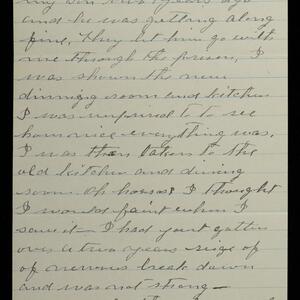 my son two years ago
and he was getting along
fine. They let him go with
me through the prison, I
was shown the new
dinning room and kitchen
I was surprised to see
how nice everything was.
I was then taken to the
old kitchen and dining
room. Oh horrors I thought
I would faint when I
saw it I had just gotten
over a two years siege of
of nervous break down
and was not strong—